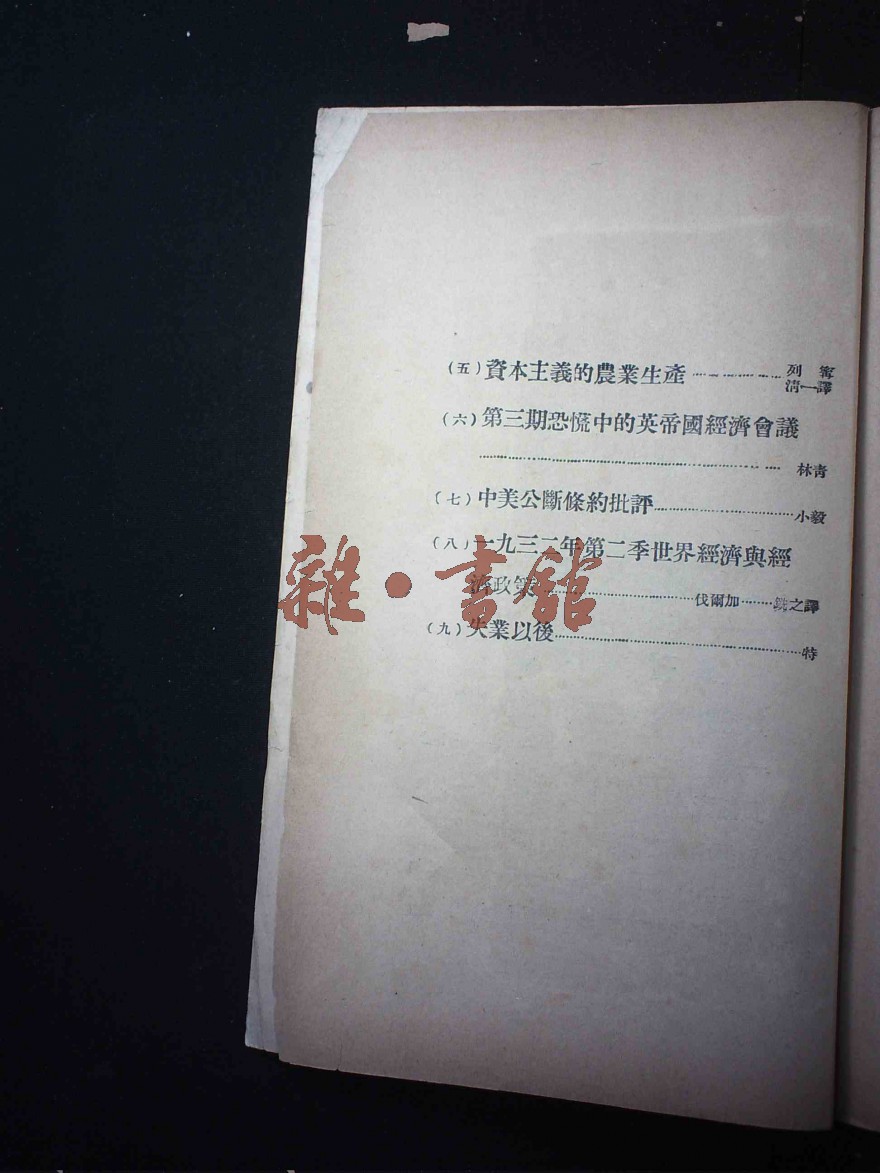 （五）資本主義的農業生產…………列甯
清一譯
（六）第三期恐慌中的英帝國經濟會議
…………林青
（七）中美公斷條約批評…………小毅
（八）一九三二年第二季世界經濟與經
濟政策…………伐爾加………銚之譯
（九）失業以後…………特
雜·書舘